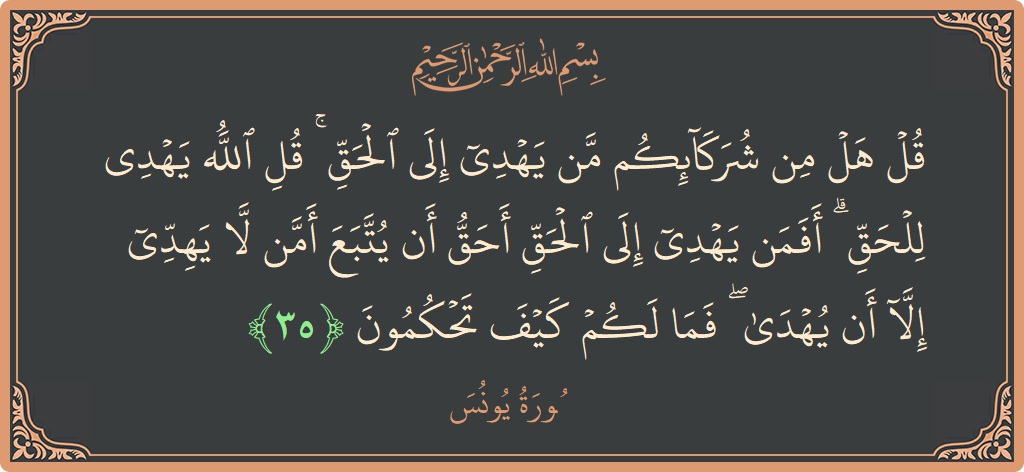 بِسْمِ اللهِ الرَّحْمٰنِ الرَّحِيْمِ
قُلۡ هَلۡ مِن شُرَكَآئِكُم مَّن يَهۡدِىٓ إِلَى ٱلۡحَقِّ ۚ قُلِ ٱللَّهُ يَهۡدِى
لِلۡحَقِّ ۗ أَفَمَن يَهۡدِىٓ إِلَى ٱلۡحَقِّ أَحَقُّ أَن يُتَّبَعَ أَمَّن لَّا يَهِدِّىٓ
إِلَّآ أَن يُهۡدَىٰ ۖ فَمَا لَكُمۡ كَيۡفَ تَحۡكُمُونَ ﴿٣٥﴾
سُورَةُ يُونُسَ